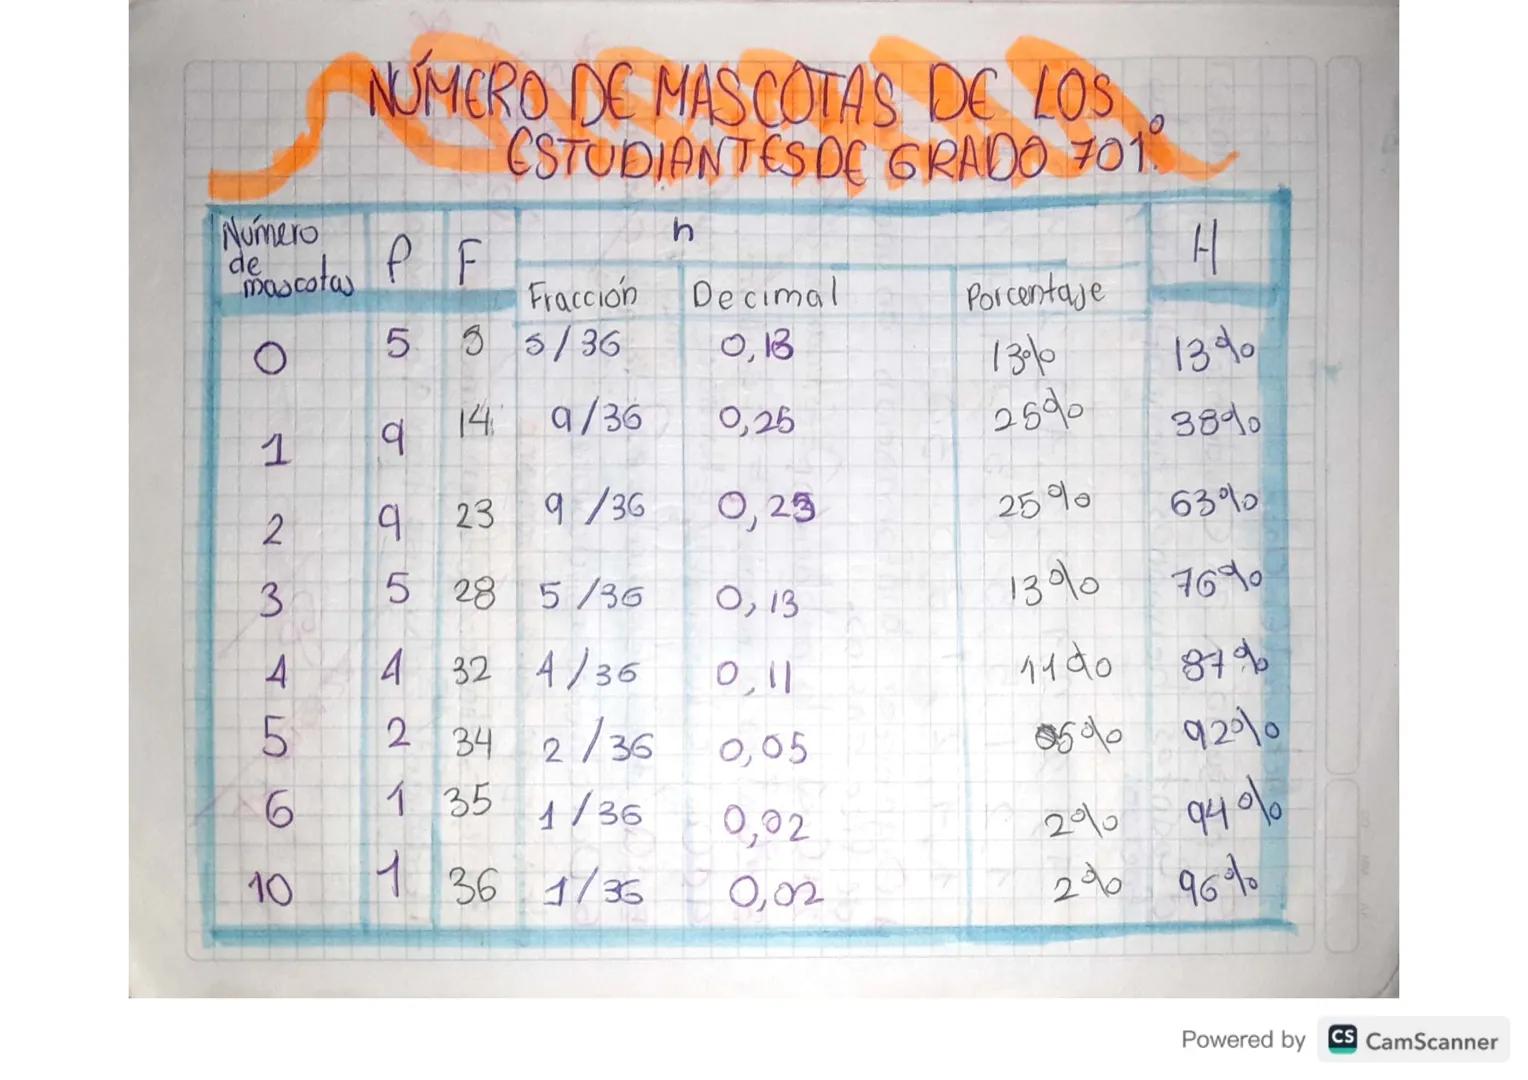 NÚMERO DE MASCOTAS DE LOS
ESTUDIANTES DE GRADO 701°.
Número de mascotas f F h H
Fracción Decimal Porcentaje
0 5 5 5/36 0,13 13% 13%
1 9 14 9/36 0,25 25% 38%
2 9 23 9/36 0,25 25% 63%
3 5 28 5/36 0,13 13% 76%
4 4 32 4/36 0,11 11% 87%
5 2 34 2/36 0,05 5% 92%
6 1 35 1/36 0,02 2% 94%
10 1 36 1/36 0,02 2% 96%
Powered by CS CamScanner